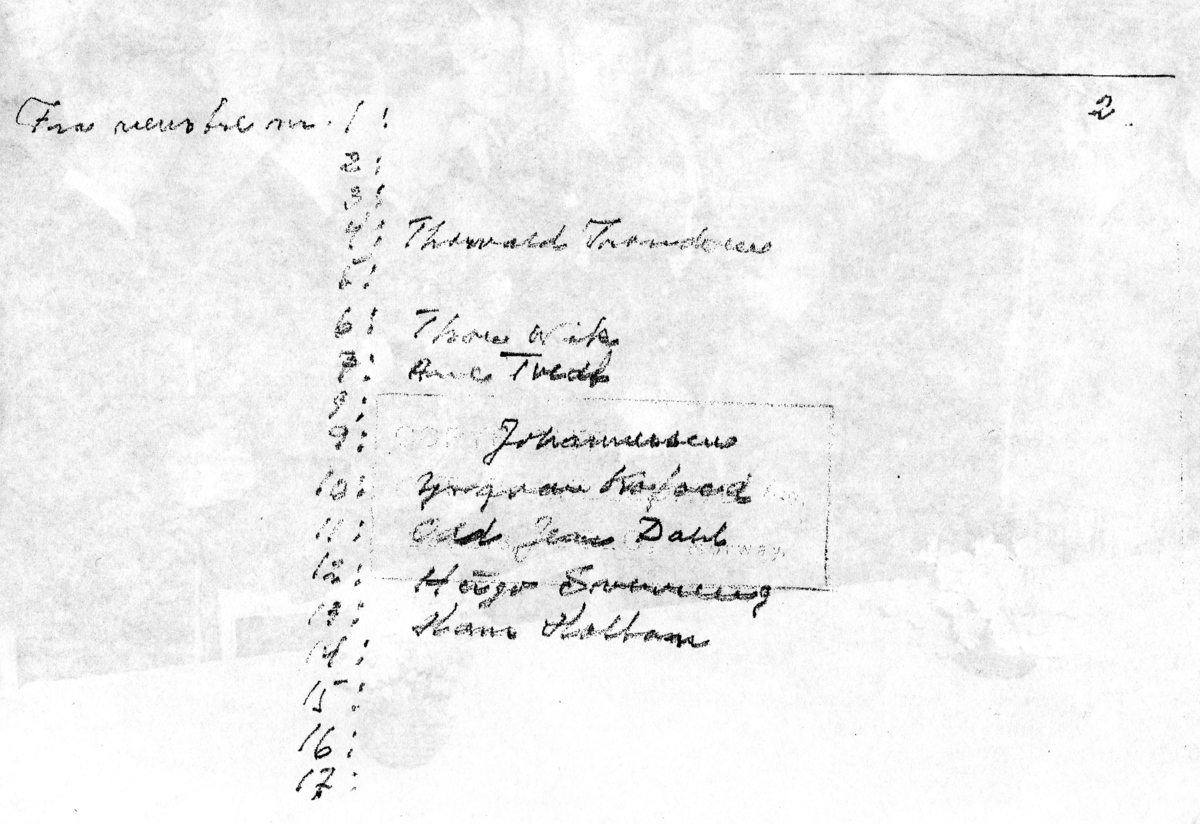 2.
Fra venstre nr. 1:
2:
3:
4: Thorvald Trondsen
5:
6: Thore Wik
7: Tvedt
8:
9: Johannessen
10: Yngvar Kofoed
11: Odd Jean Dahl
Norway
12: Hugo
13: Hans
14:
15:
16:
17: